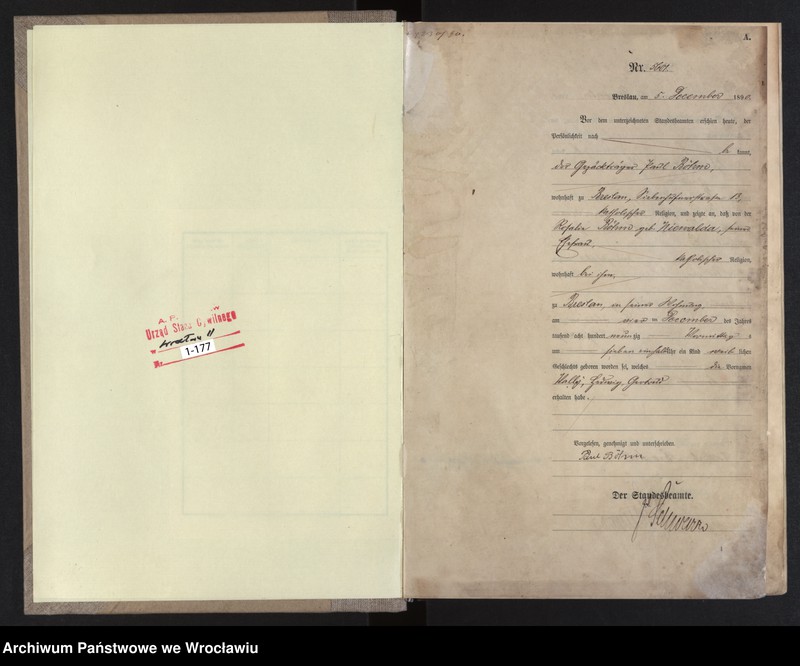 A. P.
Urząd Stanu Cywilnego
w Wrocław II
Nr.
1-177
A.
Nr.
Breslau, am 5. December 1890.
Vor dem unterzeichneten Standesbeamten erschien heute, der
Persönlichkeit nach
kannt,
der Gepäckträger Paul Böhm,
wohnhaft zu Breslau,
katholischer Religion, und zeigte an, daß von der
Rosalie Böhm geb. seiner
Ehefrau,
katholischer Religion,
wohnhaft bei ihm,
zu Breslau, in seiner Wohnung
am December des Jahres
tausend acht hundert neunzig Vormittag s
um sieben Uhr ein Kind weib lichen
Geschlechts geboren worden sei, welches die Vornamen
Hedwig Gertrud
erhalten habe.
Vorgelesen, genehmigt und unterschrieben
Paul Böhm
Der Standesbeamte.
Archiwum Państwowe we Wrocławiu